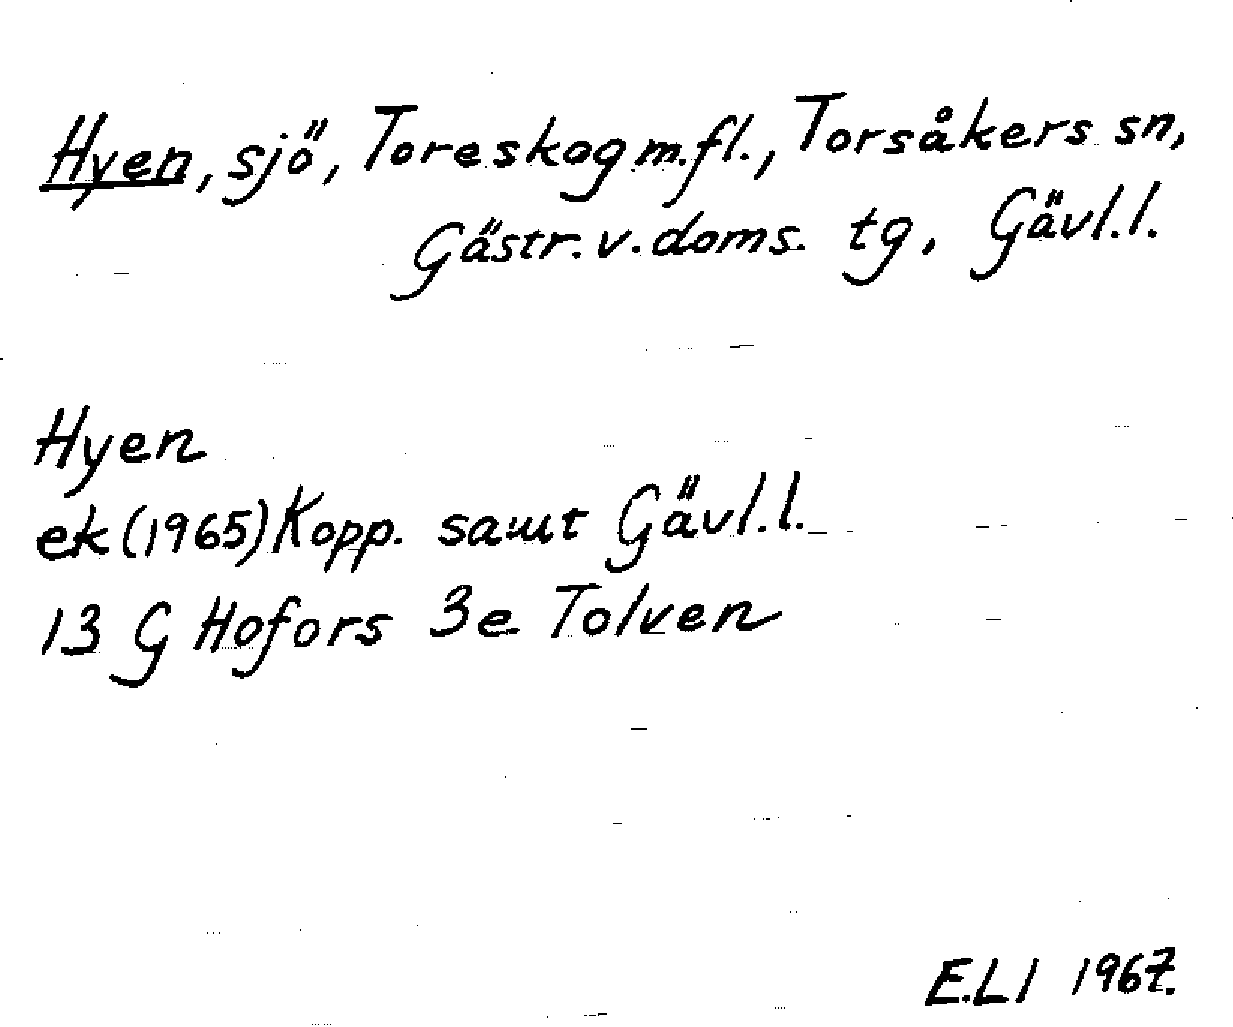 Hyen, sjö, Toreskog m.fl., Torsåkers sn,
Gästr. v. doms. tg, Gävl.l.
Hyen
ek (1965) Kopp. samt Gävl.l.
13 G Hofors 3e Tolven
E.L I 1967.